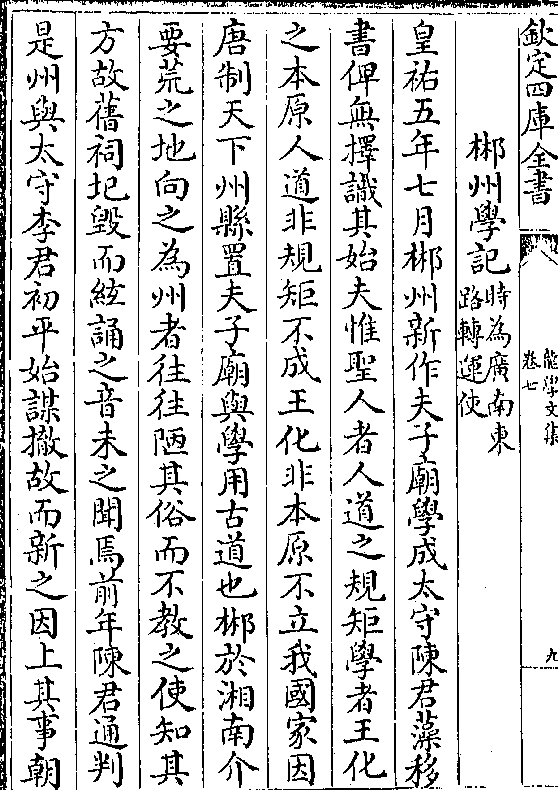 欽定四庫全書
龍學文集
卷七
九
郴州學記時為廣南東
路轉運使
皇祐五年七月郴州新作夫子廟學成太守陳君藻移
書俾無擇識其始夫惟聖人者人道之規矩學者王化
之本原人道非規矩不成王化非本原不立我國家因
唐制天下州縣置夫子廟與學用古道也郴於湘南介
要荒之地向之為州者往往陋其俗而不教之使知其
方故舊祠圮毀而絃誦之音未之聞焉前年陳君通判
是州與太守李君初平始謀撤故而新之因上其事朝